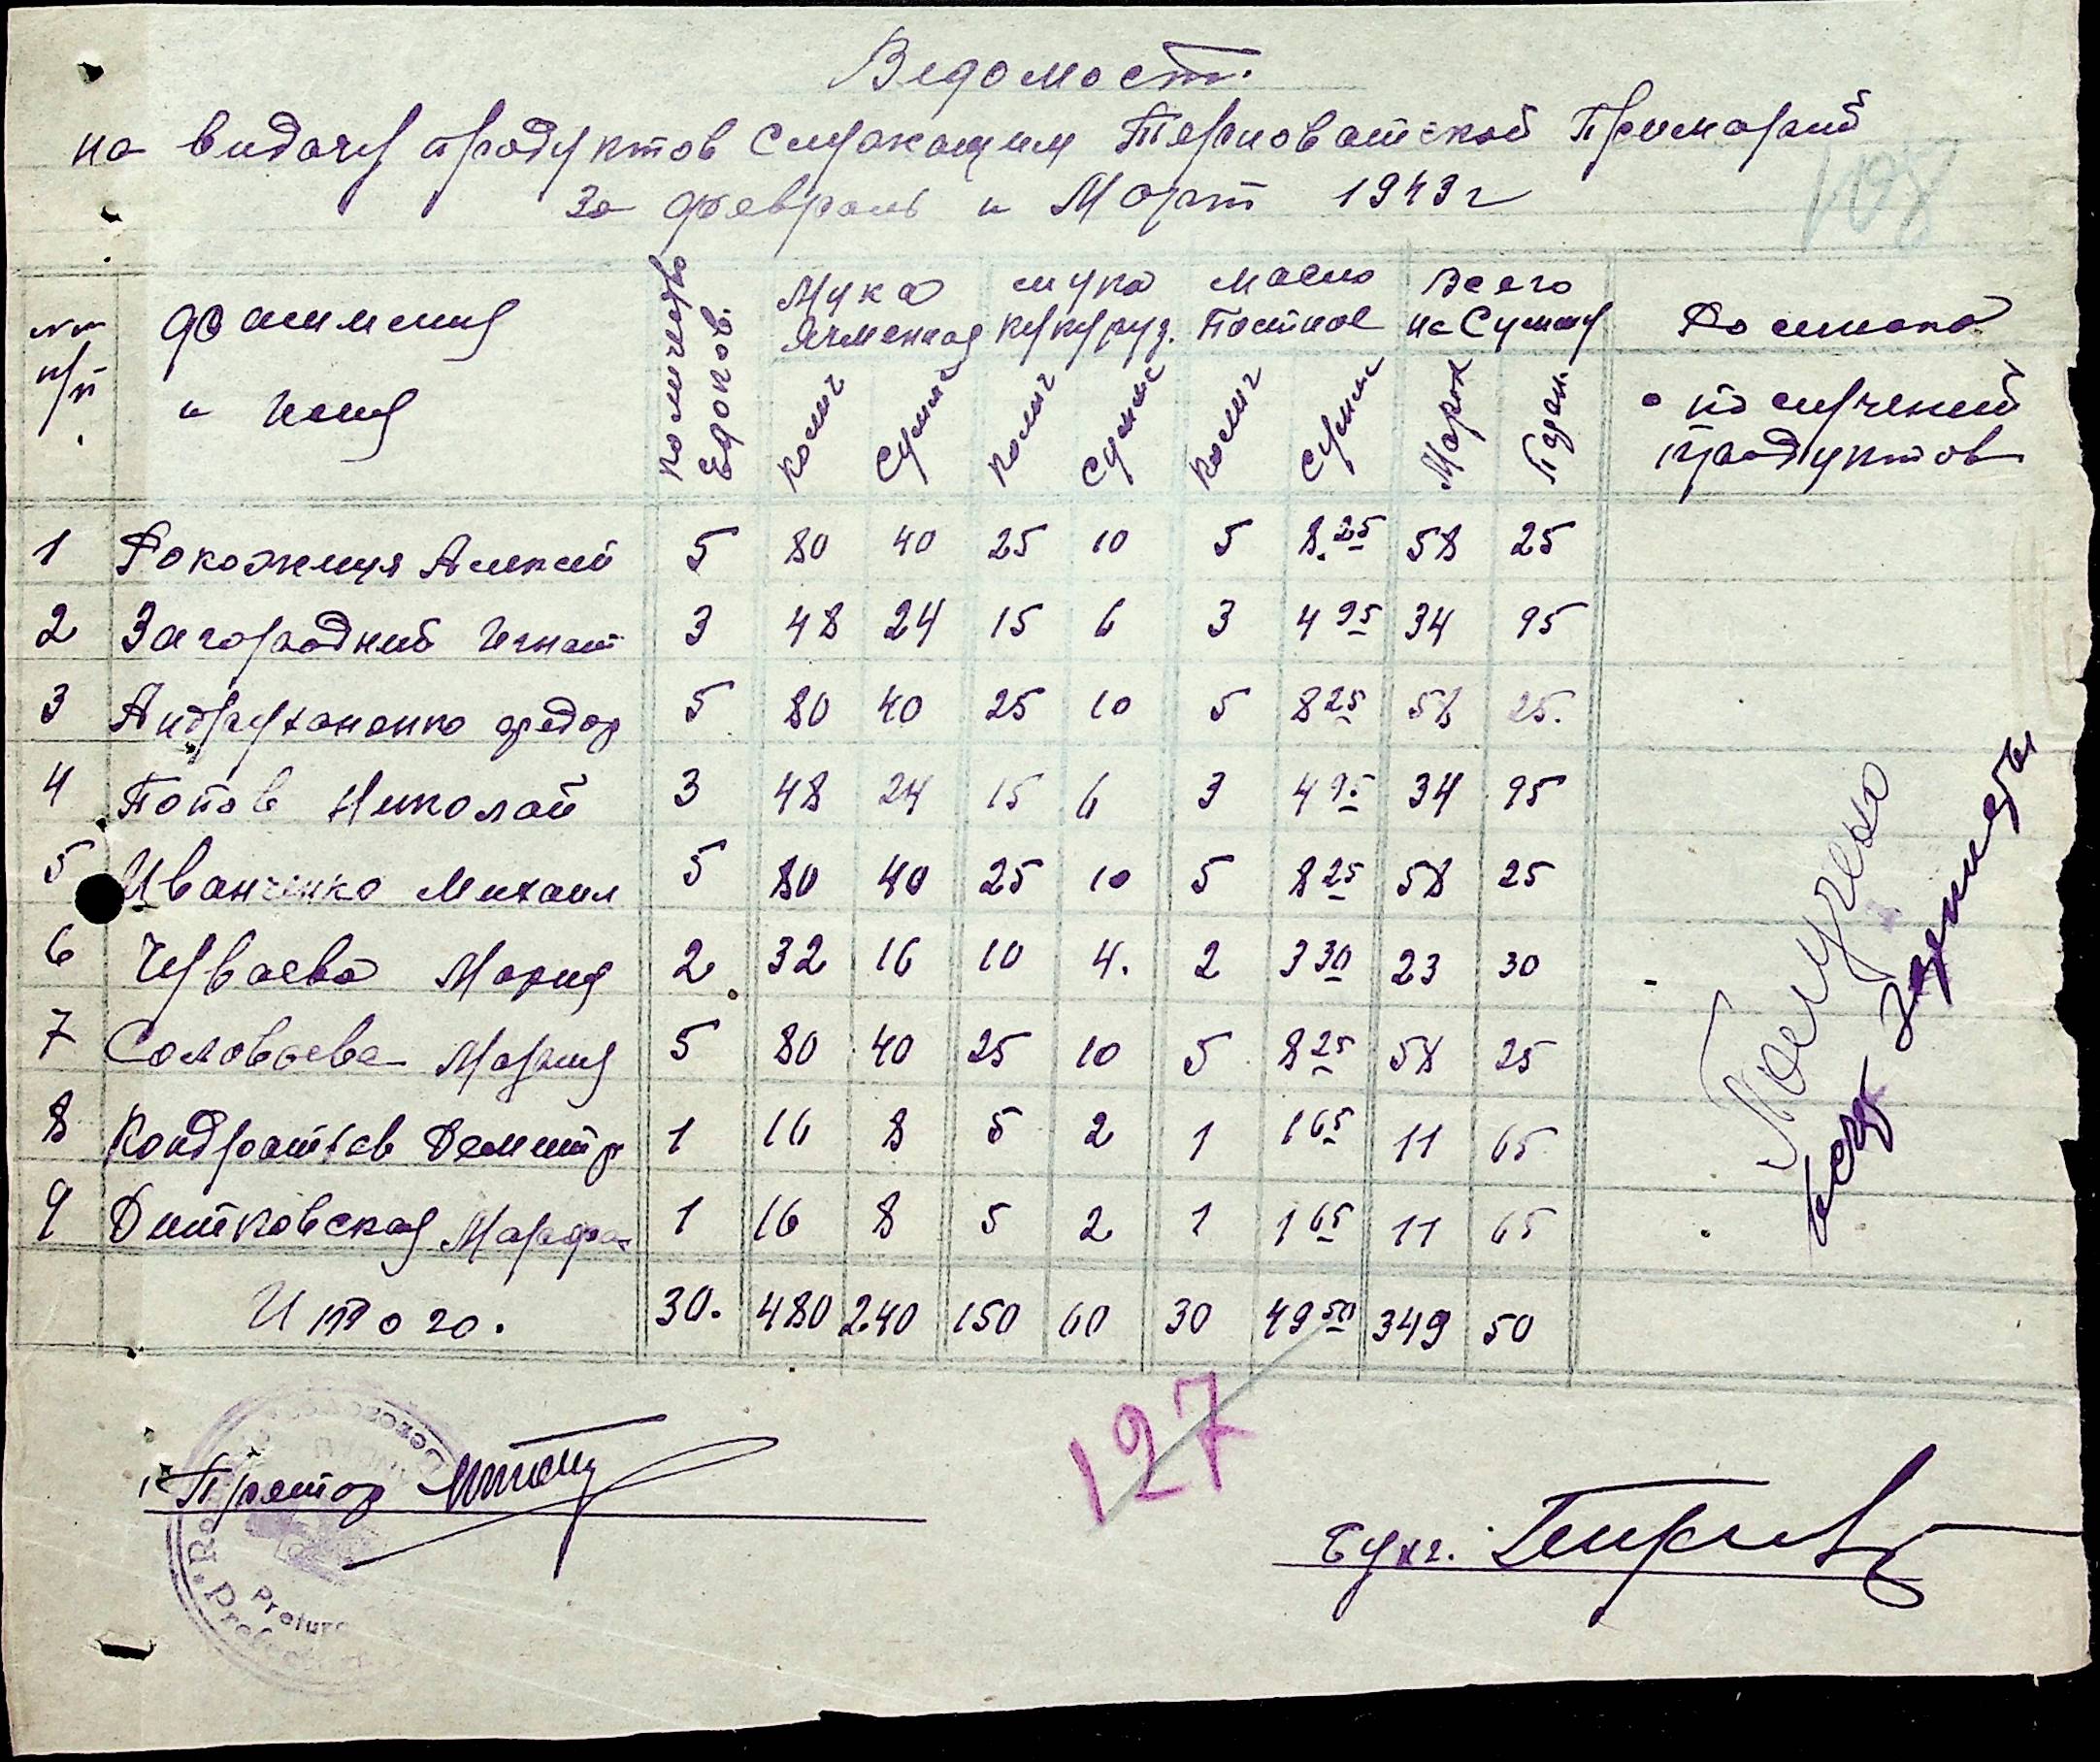 Ведомость.
на видачу продуктов служащим Терноватской Примарий
За февраль и Март 1943 г
108
№№ п/п
фамилия и Имя
Количество Едоков.
Мука Ячменная
мука кукуруз.
масло Постное
Всего на Сумму
Росписка о получений продуктов
Колич Сумма Колич Сумма Колич Сумма Марок Пфен.
1 Рокожиця Алексей 5 80 40 25 10 5 8.25 58 25
2 Загородний Игнат 3 48 24 15 6 3 4 95 34 95
3 Андрухоненко федор 5 80 40 25 10 5 8 25 58 25.
4 Попов Николай 3 48 24 15 6 3 4 95 34 95
5 Иванченко Михаил 5 80 40 25 10 5 8 25 58 25
6 Чуваева Мария 2 32 16 10 4. 2 3 30 23 30
7 Соловьева Мария 5 80 40 25 10 5 8 25 58 25
8 Кондратьев Деметр 1 16 8 5 2 1 1 65 11 65
9 Дитковская Марфа 1 16 8 5 2 1 1 65 11 65
Итого. 30. 480 240 150 60 30 49 50 349 50
Получено
127
Претор
Бухг.
Pretura